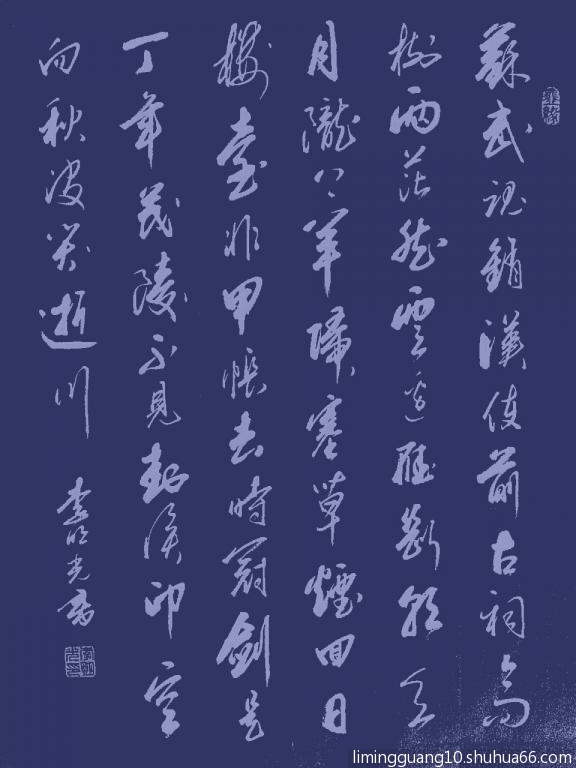 蘇武魂銷漢使前古祠高
樹兩茫然雲邊雁斷胡天
月隴上羊歸塞草煙回日
樓臺非甲帳去時冠劍是
丁年茂陵不見封侯印空
向秋波哭逝川
李明光書
limingguang10.shuhua66.com